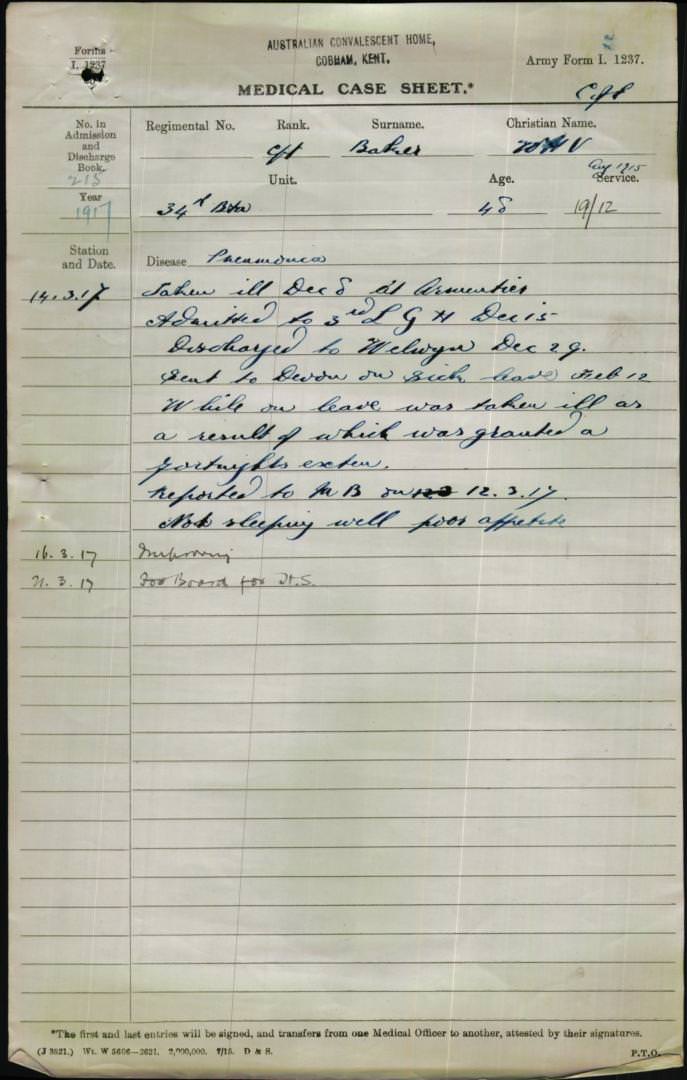 AUSTRALIAN CONVALESCENT HOME,
COBHAM, KENT.
Forms
I. 1237
Army Form I. 1237.
MEDICAL CASE SHEET.*
No. in
Admission
and
Discharge
Book.
213
Year
1917
Regimental No. Rank. Surname. Christian Name.
Cpt Baker W H V
Unit. Age. Service.
Aug 1915
34th Btn 48 19/12
Station
and Date.
Disease Pneumonia
14.3.17 Taken ill Dec 8 at Armentier
Admitted to 3rd L G H Dec 15
Discharged to Welwyn Dec 29.
Sent to Devon on sick leave Feb 12
While on leave was taken ill as
a result of which was granted a
fortnights exten.
Reported to M B on 12.3.17.
Not sleeping well poor appetite
16.3.17 Improving
21.3.17 For Board for H.S.
*The first and last entries will be signed, and transfers from one Medical Officer to another, attested by their signatures.
(J 3821.) Wt. W 5606—2621. 2,000,000. 7/15. D & S. P.T.O.